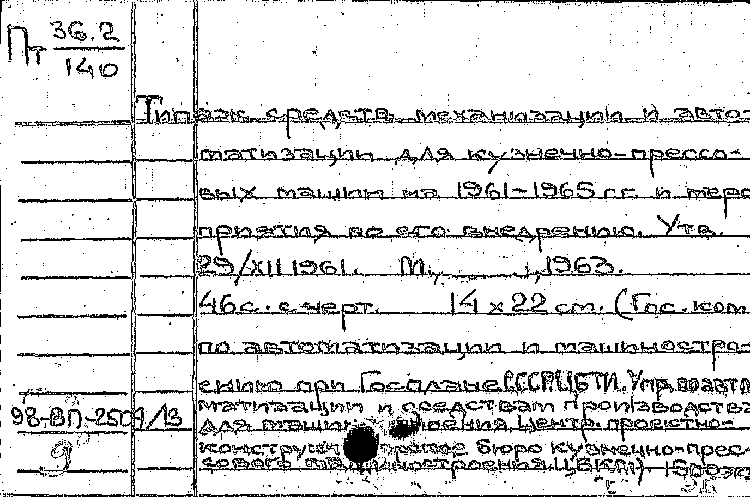 Пт 36.2
140
Типаж средств механизации и авто-
матизации для кузнечно-прессо-
вых машин на 1961-1965 гг. и меро
приятия по его внедрению. Утв.
29/XII 1961. М., 1963.
46 с. с черт. 14 x 22 см. (Гос. ком
по автоматизации и машиностро-
ению при Госплане СССР. ЦБТИ. Упр по авто
матизации и средствам производства
98-ВП-2509/13
для машин Центр. проектно-
9
конструк бюро кузнечно-прес
сового машиностроения. ЦБКМ) 1500 экз